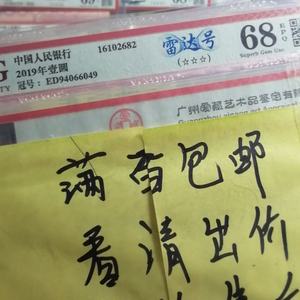 中国人民银行 16102682 雷达号 68 EPQ
2019年壹圆 (☆☆☆) Superb Gem Unc
冠号：ED94066049
广州爱藏艺术品鉴定有
满百包邮
看清出价